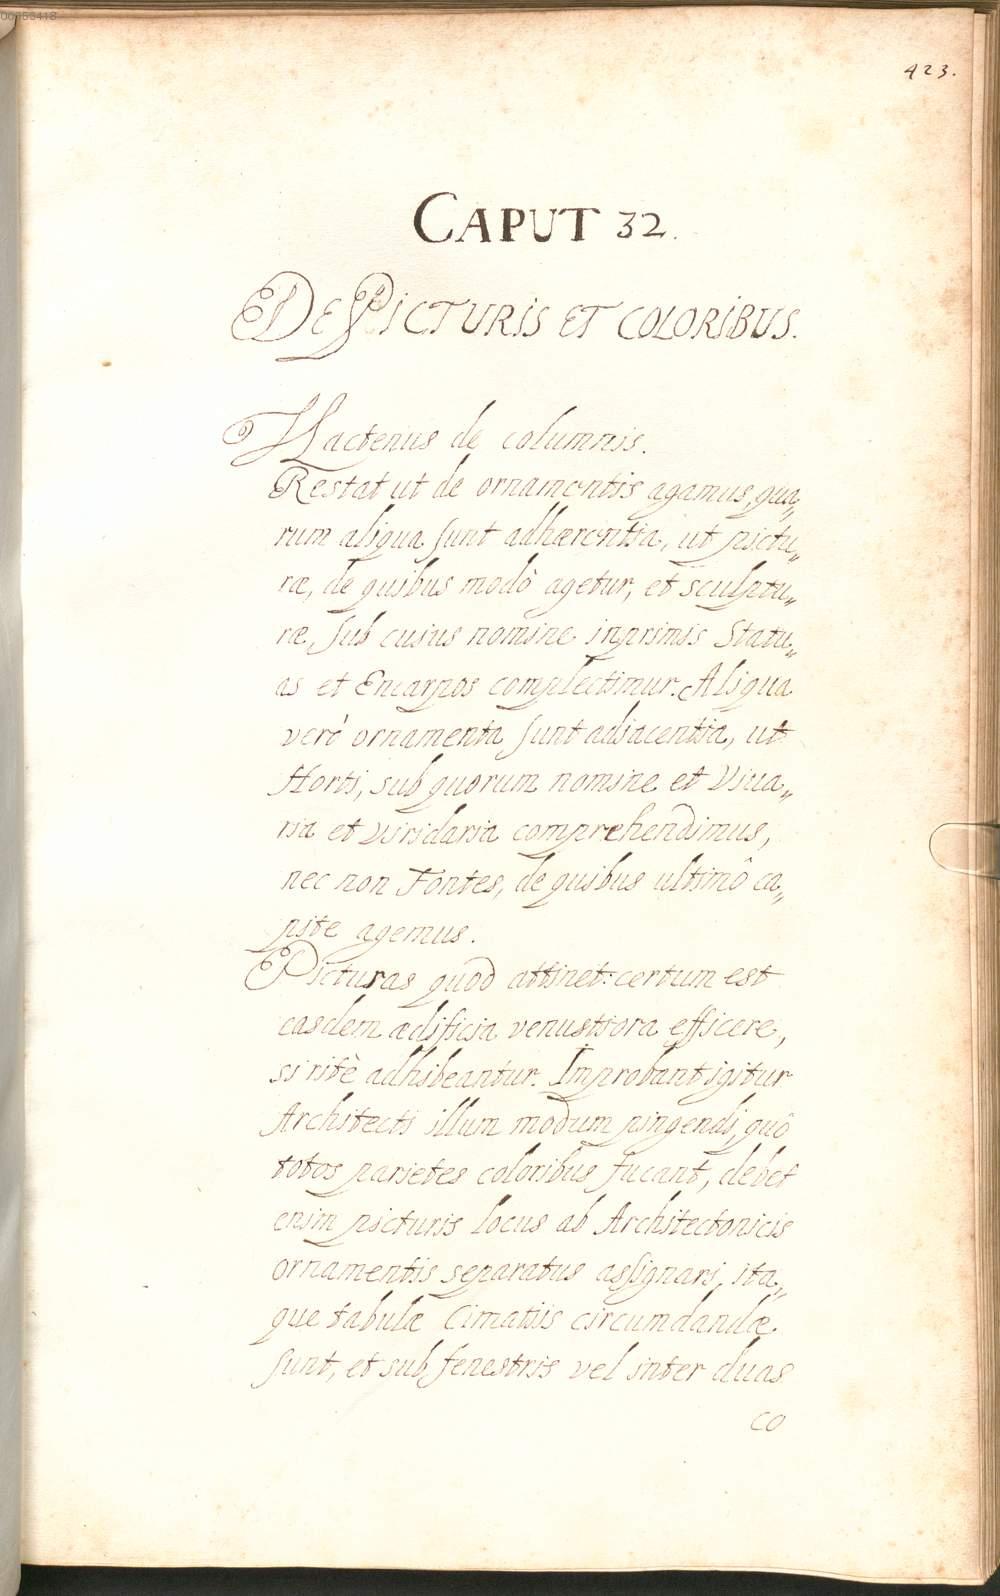 00153418
423.
CAPUT 32.
DE PICTURIS ET COLORIBUS.
Hactenus de columnis.
Restat ut de ornamentis agamus, quo„
rum aliqua sunt adhærentia, ut pictu„
ræ, de quibus modò agetur, et sculptu„
ræ, sub cuius nomine inprimis Statu„
as et Encarpos complectimur. Aliqua
verò ornamenta sunt adiacentia, ut
Horti, sub quorum nomine et Viva„
ria et viridaria comprehendimus,
nec non Fontes, de quibus ultimô ca„
pite agemus.
Picturas quod attinet: certum est
easdem ædificia venustiora efficere,
si ritè adhibeantur. Improbant igitur
Architecti illum modum pingendi, quô
totos parietes coloribus fucant, debet
enim picturis locus ab Architectonicis
ornamentis separatus assignari, ita„
que tabulæ Cimatiis circumdandæ
sunt, et sub fenestris vel inter duas
co